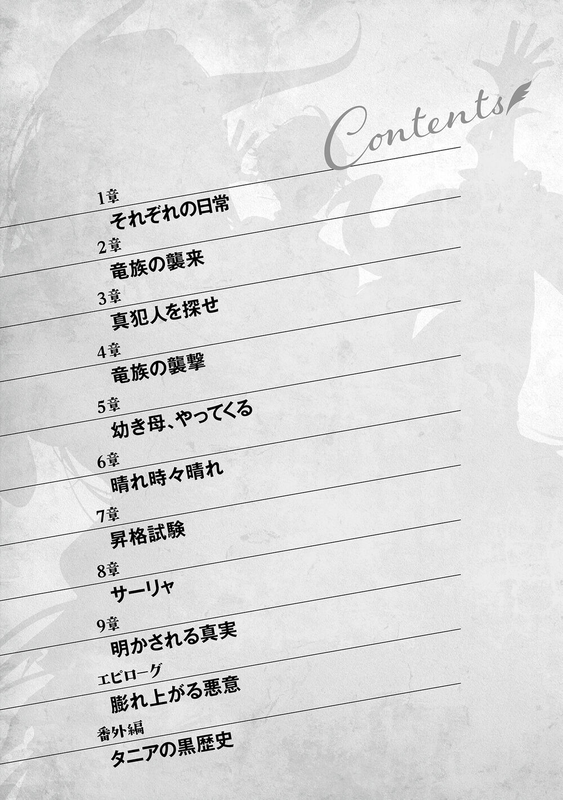 Contents
1章
それぞれの日常
2章
竜族の襲来
3章
真犯人を探せ
4章
竜族の襲撃
5章
幼き母、やってくる
6章
晴れ時々晴れ
7章
昇格試験
8章
サーリャ
9章
明かされる真実
エピローグ
膨れ上がる悪意
番外編
タニアの黒歴史